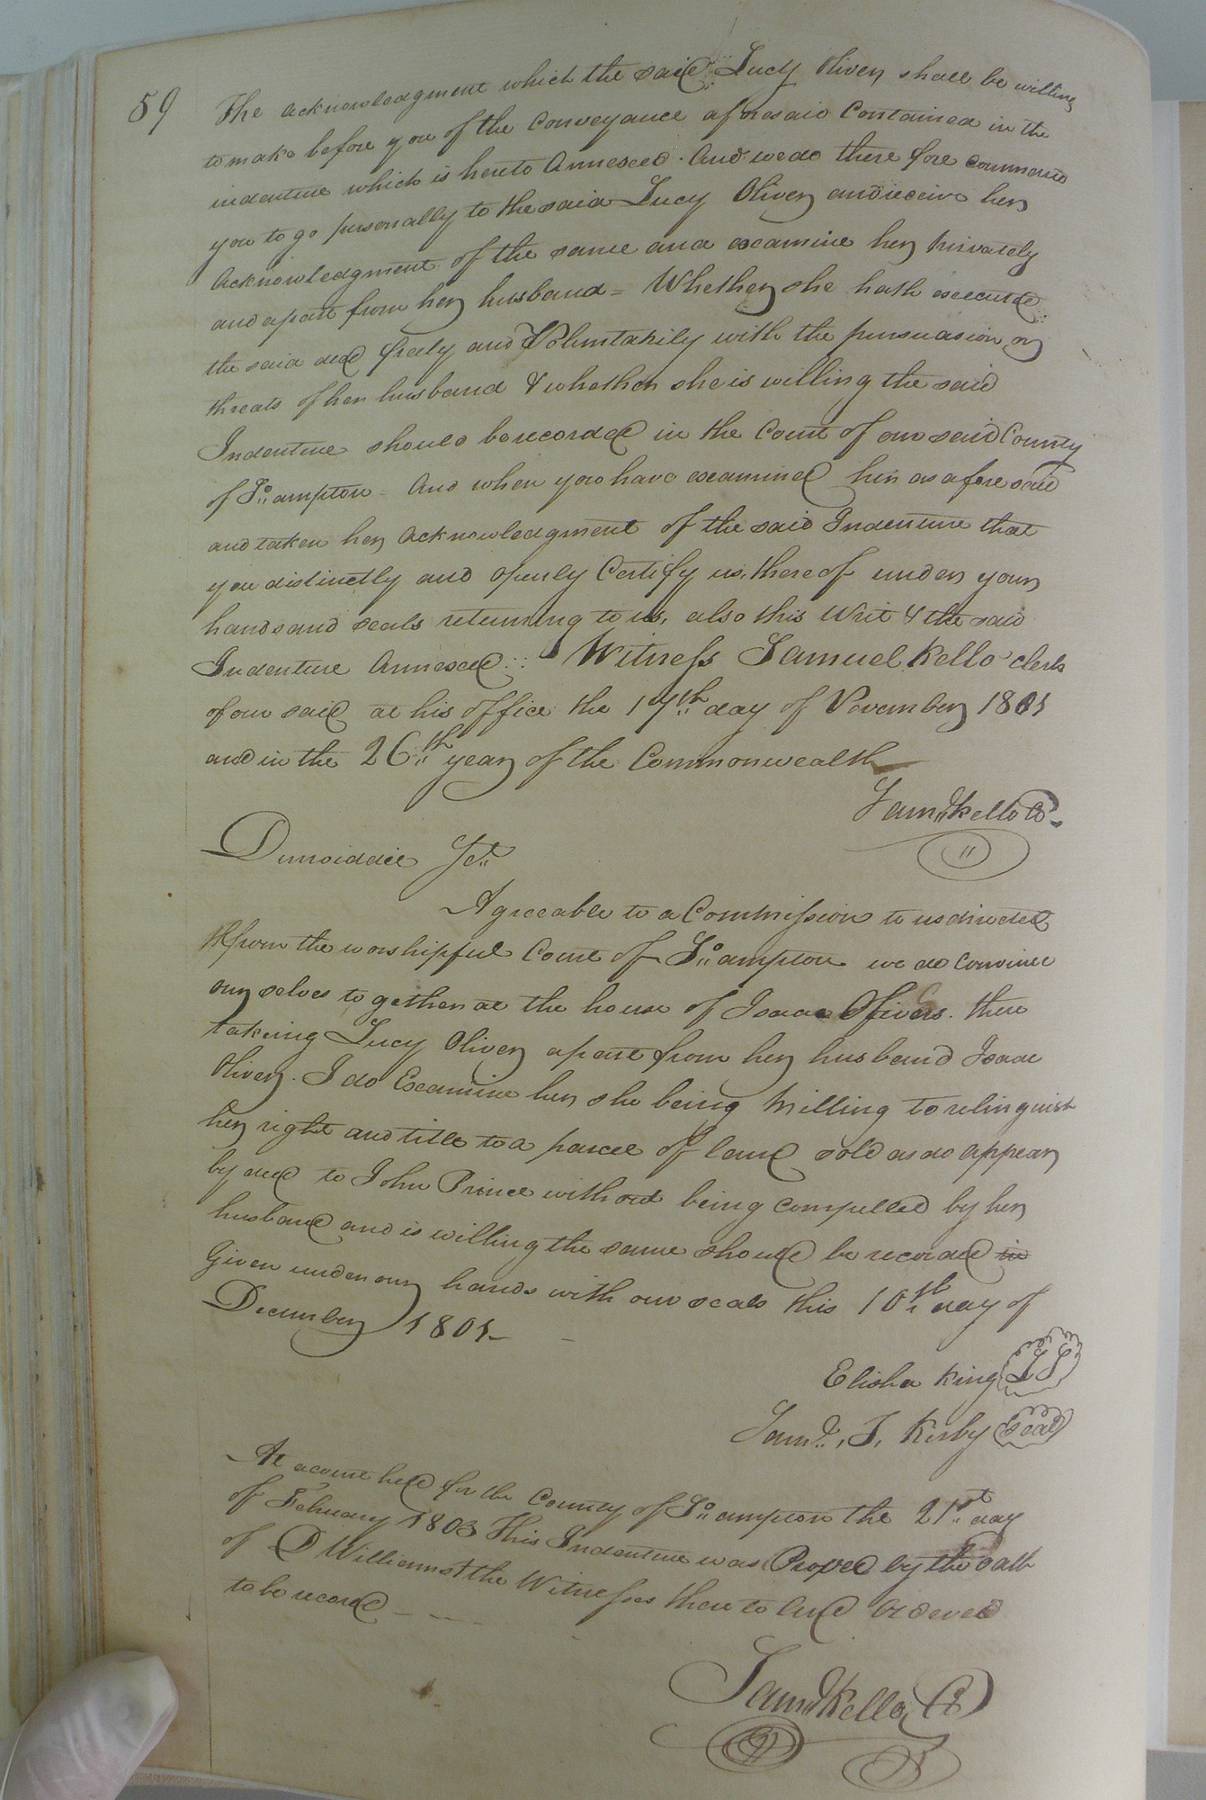 59
The Acknowledgment which the said Lucy Oliver shall be willing
to make before you of the Conveyance aforesaid Contained in the
indenture which is hereto Annexed. And we do there fore command
you to go personally to the said Lucy Oliver and receive her
Acknowledgment of the same and examine her privately
and apart from her husband = Whether she hath executed
the said deed freely and Voluntarily with the persuasion or
threats of her husband & whether she is willing the said
Indenture should be recorded in the Court of our said County
of So:ampton - And when you have examined her as afore said
and taken her Acknowledgment of the said Indenture that
you distinctly and openly Certify us, thereof under your
hands and seals returning to us, also this Writ & the said
Indenture Annexed :: Witness Samuel Kello clerk
of our said at his office the 17th day of November 1801
and in the 26th year of the Commonwealth
Saml Kello Cl
Dinwiddie Sct
Agreeable to a Commission to us directed
from the worshipful Court of So:ampton we do convince
our selves to gether at the house of Isaac Olivers. then
takeing Lucy Oliver apart from her husband Isaac
Oliver. I do Examine her she being willing to relinquish
her right and title to a parcel of land sold as do appear
by deed to John Prince without being compelled by her
husband and is willing the same should be recorded in
Given under our hands with our seals this 10th day of
December 1801 -
Elisha King LS
Saml., T. Kirby Seal
At a court held for the County of So:ampton the 21st day
of February 1803 This Indenture was Proved by the Oath
of D Williams & the Witnesses there to and Ordered
to be record - - -
Saml Kello Cl